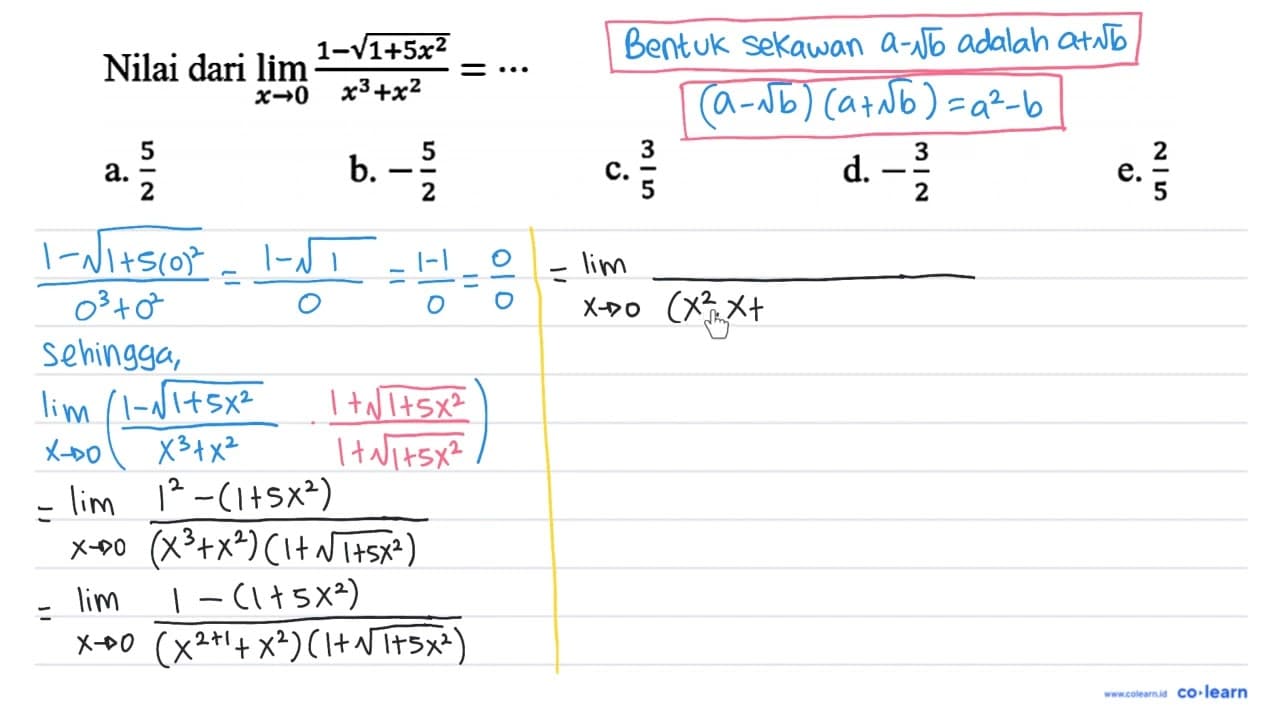 Nilai dari lim x→0 (1-√(1+5x²))/(x³+x²) = ...
Bentuk sekawan a-√b adalah a+√b
(a-√b)(a+√b) = a²-b
a. 5/2 b. -5/2 c. 3/5 d. -3/2 e. 2/5
(1-√(1+5(0)²))/(0³+0²) = (1-√1)/0 = (1-1)/0 = 0/0
sehingga,
lim x→0 ((1-√(1+5x²))/(x³+x²) · (1+√(1+5x²))/(1+√(1+5x²)))
= lim x→0 (1²-(1+5x²))/((x³+x²)(1+√(1+5x²)))
= lim x→0 (1-(1+5x²))/((x²⁺¹+x²)(1+√(1+5x²)))
= lim x→0 /(x².x+
www.colearn.id co·learn